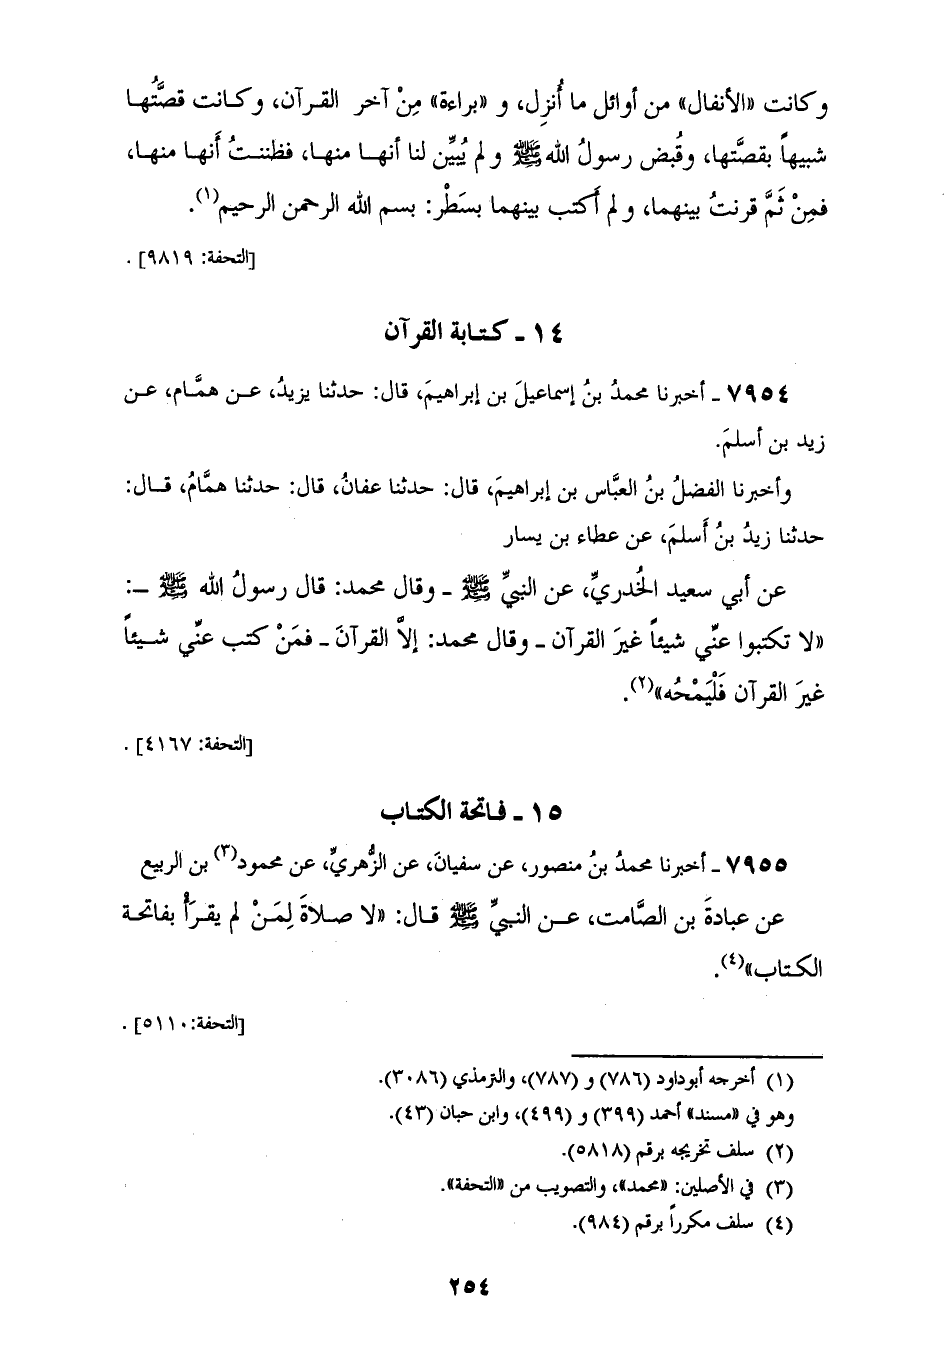 وكانت «الأنفال» من أوائل ما أُنزِل، و «براءة» مِنْ آخر القرآن، وكانت قصَّتُها
شبيهاً بقصَّتها، وقُبض رسولُ الله ﷺ و لم يُبيِّن لنا أنها منها، فظننتُ أَنها منها،
فمِنْ ثَمَّ قرنتُ بينهما، و لم أَكتب بينهما بسَطْر: بسم الله الرحمن الرحيم(١).
[التحفة: ٩٨١٩] .
١٤ ـ كتابة القرآن
٧٩٥٤ ـ أخبرنا محمدُ بنُ إسماعيلَ بن إبراهيمَ، قال: حدثنا يزيدُ، عن همَّام، عن
زيد بن أسلمَ.
وأخبرنا الفضلُ بنُ العبَّاس بن إبراهيمَ، قال: حدثنا عفانُ، قال: حدثنا همَّامُ، قال:
حدثنا زيدُ بنُ أَسلمَ، عن عطاء بن يسار
عن أبي سعيد الخُدريِّ، عن النبيِّ ﷺ ـ وقال محمد: قال رسولُ الله ﷺ ـ:
«لا تكتبوا عنِّي شيئاً غيرَ القرآن ـ وقال محمد: إلاَّ القرآنَ ـ فمَنْ كتب عنِّي شيئاً
غيرَ القرآن فَلْيَمْحُه»(٢).
[التحفة: ٤١٦٧] .
١٥ ـ فاتحة الكتاب
٧٩٥٥ ـ أخبرنا محمدُ بنُ منصور، عن سفيانَ، عن الزُّهريِّ، عن محمود(٣) بن الربيع
عن عبادةَ بن الصَّامت، عن النبيِّ ﷺ قال: «لا صلاةَ لِمَنْ لم يقرَأْ بفاتحة
الكتاب»(٤).
[التحفة: ٥١١٠] .
(١) أخرجه أبوداود (٧٨٦) و (٧٨٧)، والترمذي (٣٠٨٦).
وهو في «مسند» أحمد (٣٩٩) و (٤٩٩)، وابن حبان (٤٣).
(٢) سلف تخريجه برقم (٥٨١٨).
(٣) في الأصلين: «محمد»، والتصويب من «التحفة».
(٤) سلف مكرراً برقم (٩٨٤).
٢٥٤